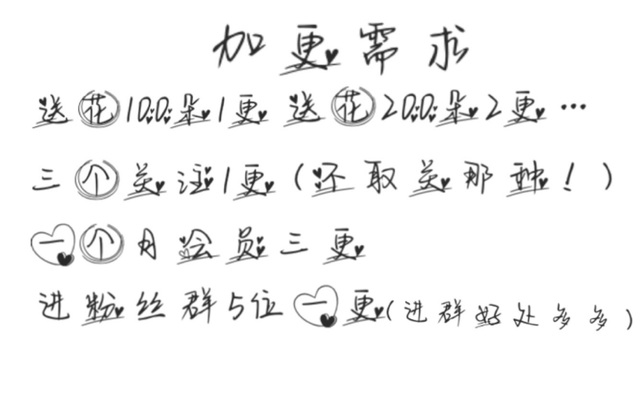 加更需求
送花100朵1更 送花200朵2更…
三个关注1更(还取关那种!)
一个月会员三更
进粉丝群5位一更(进群好处多多)